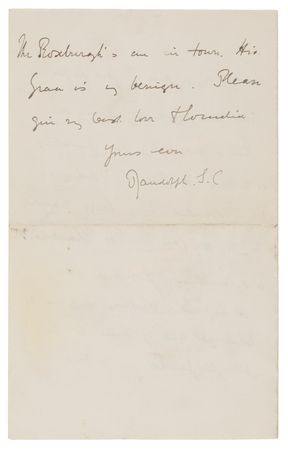 The Roxburgh's are in town. His
Grace is vy benign. Please
give my best love to
Yours ever
Randolph. S. C